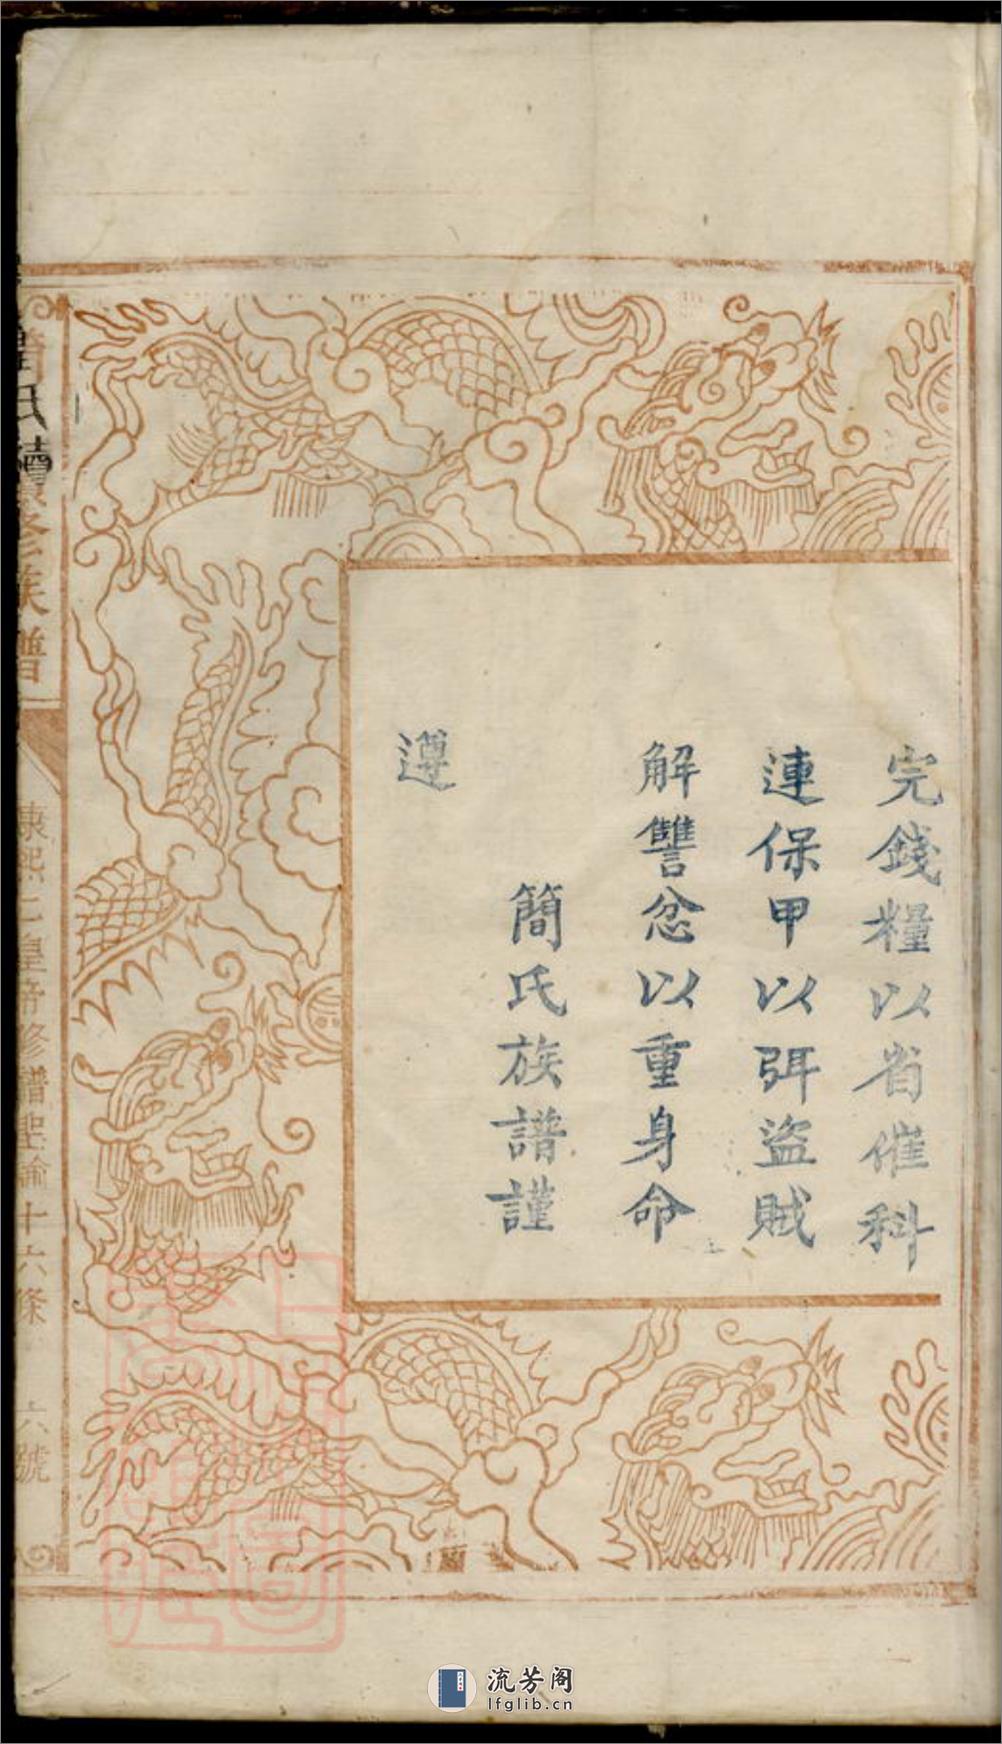 完錢糧以省催科
連保甲以弭盜賊
解讐忿以重身命
簡氏族譜謹
遵
簡氏續修族譜
康熙仁皇帝修譜聖諭十六條
六號
流芳阁
lfglib.cn